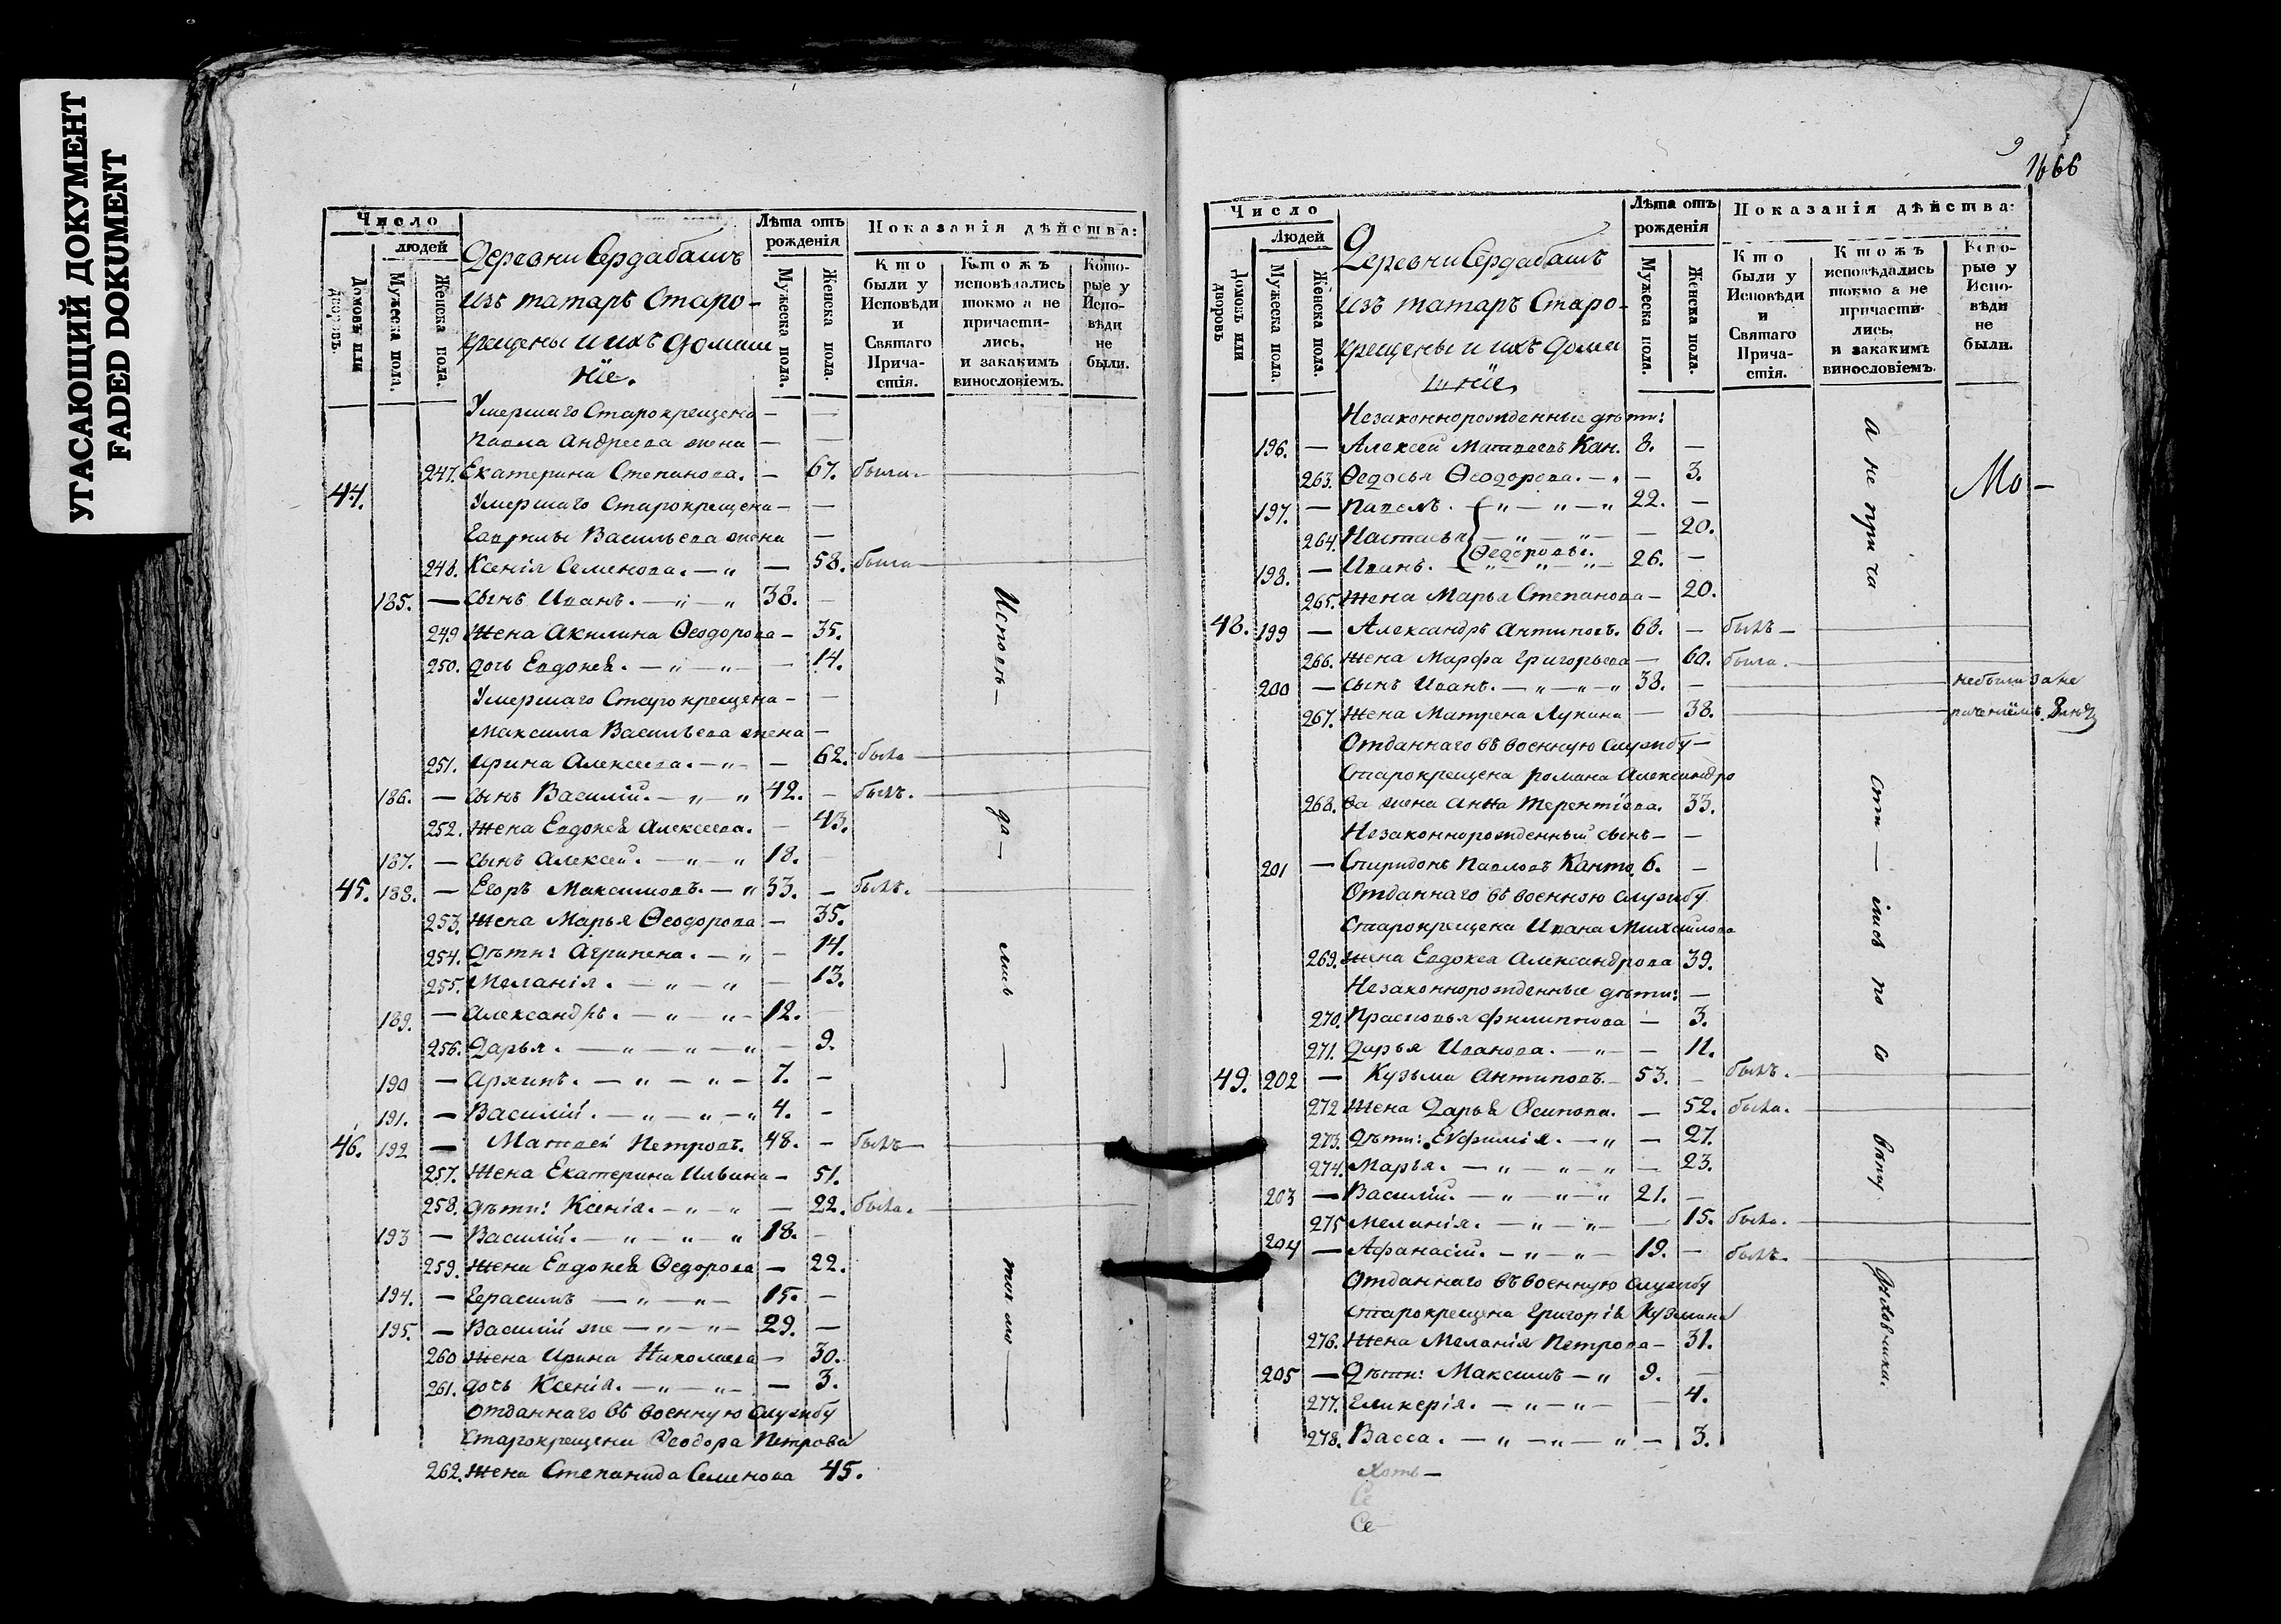 УГАСАЮЩИЙ ДОКУМЕНТ
FADED DOKUMENT
Число
людей
Домовъ или дворовъ.
Мужеска пола.
Женска пола.
Деревни Сердабашъ
изъ татаръ Старо-
крещены и ихъ домаш
ніе.
Лѣта отъ рожденія
Мужеска пола.
Женска пола.
Показанія дѣйства:
Кто были у Исповѣди и Святаго Прича-стія.
Ктожъ исповѣдались токмо а не причасти-лись, и закакимъ винословіемъ.
Кото-рые у Испо-вѣди не были.
Умершаго Старокрещена — —
Павла Андреева жена — —
247. Екатерина Степанова. — 67. была.
44. Умершаго Старокрещена — —
Гаврилы Васильева жена —
248. Ксенія Семенова. — „ — 58. была
185. — сынъ Иванъ. — „ — „ 38. —
249 жена Акилина Ѳеодорова — 35.
250. дочь Евдокеѧ. — „ — „ — 14.
Умершаго Старокрещена — —
Максима Васильева жена —
251. Ирина Алексеева. — „ — 62. была
186. — сынъ Василій. — „ — „ 42. — былъ.
252. жена Евдокеѧ Алексеева. — 43.
187. — сынъ Алексей. — „ — „ 18. —
45. 188. — Егоръ Максимовъ. — „ 33. — былъ.
253. жена Марья Ѳеодорова — 35.
254. дѣти: Агрипена. — „ — 14.
255. Меланія. — „ — „ — 13.
189. — Александръ. — „ — „ — 12. —
256. Дарья. — „ — „ — „ — 9.
190 — Архипъ. — „ — „ — 7. —
191. — Василій. — „ — „ — „ 4. —
46. 192 — Матвей Петровъ. 48. — былъ —
257. жена Екатерина Ильина — 51.
258. дѣти: Ксенія. — „ — „ — 22. была.
193 — Василій. — „ — „ — „ 18. —
259. жена Евдокеѧ Ѳедорова — 22.
194. — Герасимъ — „ — „ — 15. —
195. — Василій же — „ — „ — 29. —
260 жена Ирина Николаева — 30.
261. дочь Ксенія. — „ — „ — 3.
Отданнаго въ военную службу
Старокрещена Ѳеодора Петрова
262. жена Степанида Семенова 45.
Исповѣ —
да —
лись
1666
Число
Людей
Домовъ или дворовъ
Мужеска пола.
Женска пола.
Деревни Сердабашъ
изъ татаръ Старо-
крещены и ихъ дома
шніе,
Лѣта отъ рожденія
Мужеска пола.
Женска пола.
Показанія дѣйства:
Кто были у Исповѣди и Святаго Прича-стія.
Ктожъ исповѣдались токмо а не причасти-лись. и закакимъ винословіемъ.
Кото-рые у Испо-вѣди не были.
Незаконнорожденные дѣти:
196. — Алексей Матвеевъ Кан. 8. —
263. Ѳедосья Ѳеодорова. — . — 3.
197. — Павелъ. — „ — „ — „ 22. —
264. Настасья — „ — „ — — 20.
Ѳедоровы.
198. — Иванъ. — „ — „ — „ — 26. —
265. жена Марья Степанова — 20.
48. 199 — Александръ Антиповъ. 68. — былъ —
266. жена Марфа Григорьева — 60. была.
200 — сынъ Иванъ. — „ — „ — „ 38. — небыли за не
267. жена Матрена Лукина — 38.
Отданнаго въ военную службу —
Старокрещена Романа Александро
268. ва жена Анна Терентіева. 33.
Незаконнорожденный сынъ — —
201 — Спиридонъ Павловъ Канто. 6. —
Отданнаго въ военною службу
Старокрещена Ивана Михайлова
269. жена Евдокея Александрова 39.
Незаконнорожденные дѣти: —
270. Прасковья Филиппова — 3.
271. Дарья Иванова. — „ — — 11.
49. 202 — Кузьма Антиповъ. — 53. — былъ.
272 жена Дарьѧ Осипова. — 52. была.
273. дѣти: Еѵфимія. — „ — 27.
274. Марья. — „ — „ — „ — 23.
203 — Василій. — „ — „ — „ 21. —
275 Меланія. — „ — „ — — 15. была.
204 — Афанасій. — „ — „ — 19. — былъ.
Отданнаго въ военную службу
Старокрещена Григоріѧ Кузмина
276. жена Меланія Петрова — 31.
205 — дѣти: Максимъ — „ 9. —
277. Гликерія. — „ — „ — — 4.
278. Васса. — „ — „ — „ — 3.
а не при ча
сти — лись по со
вѣту
духовника.
Мо —
Хоть —
Се
Се